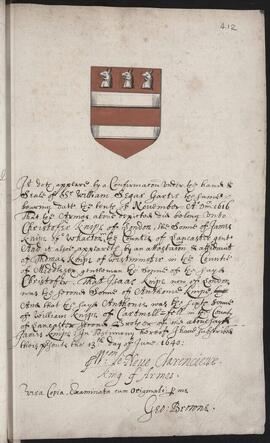 412
It doth appeare by a Confirmation under the hand &
Seale of Sr. William Segar Garter the same
bearing date the tenth of November Ano Dni 1616
That the Armes above depicted did belong unto
Christofer Knipe of London the Sonne of James
Knipe of Wharton in the Countie of Lancaster gent
And it doth appeare by an attestation & affidavit
of Thomas Knipe of Westminster in the Countie
of Middlesex gentleman the Sonne of the sayd
Christofer That Isaac Knipe now of London
was the second Sonne of Anthonie Knipe
And that the sayd Anthonie was the Sonne
of William Knipe of Cartmell-fell in the County
of Lancaster
James Knipe In Testimony thereof I have subscribed
these presents the 13th day of June 1640:
Wm. le Neve Clarenceux
King of Armes.
Vera Copia, Examinata cum Originali p me
Geo: Browne.